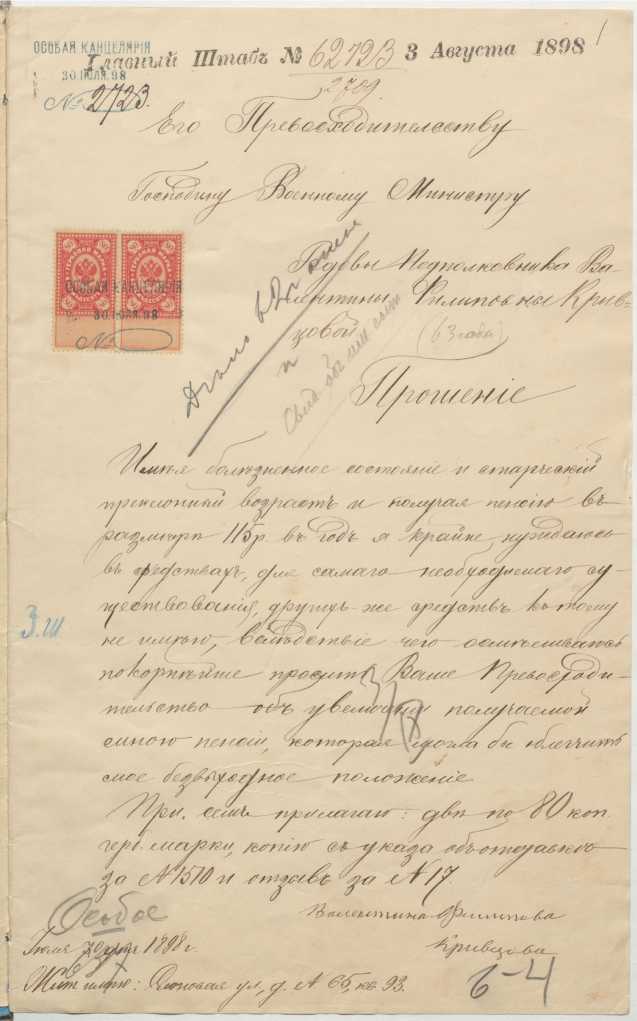 ОСОБАЯ КАНЦЕЛЯРІЯ
30 ІЮЛЯ.98
№ 2723.
Главный Штабъ № 62723 3 Августа 1898
1
2709
Его Превосходительству
Господину Военному Министру
Вдовы Подполковника Ва-
лентины Филиповны Крив-
цовой
(63 года)
ОСОБАЯ КАНЦЕЛЯРІЯ
30 ІЮЛЯ.98
№
Дѣло
Прошеніе
Имѣя болѣзненное состояніе и старческій
преклонный возрастъ и получая пенсію въ
размѣрѣ 115 р. въ годъ я крайне нуждаюсь
въ средствахъ, для самаго необходимаго су-
ществованія, другихъ же средствъ къ тому
не имѣю, вслѣдствіе чего осмѣливаюсь
покорнѣйше просить Ваше Превосходи-
тельство объ увеличеніи получаемой
мною пенсіи, которая могла бы облегчить
мое безвыходное положеніе
При семъ прилагаю: двѣ по 80 коп.
герб. марки, копію съ указа объ отставкѣ
за № 1510 и отзывъ за № 17.
З.Ш
3/8
Особое
Валентина Филипова
Кривцова
1898 г.
Жительство: ул, д. № 65, кв 93.
6-4